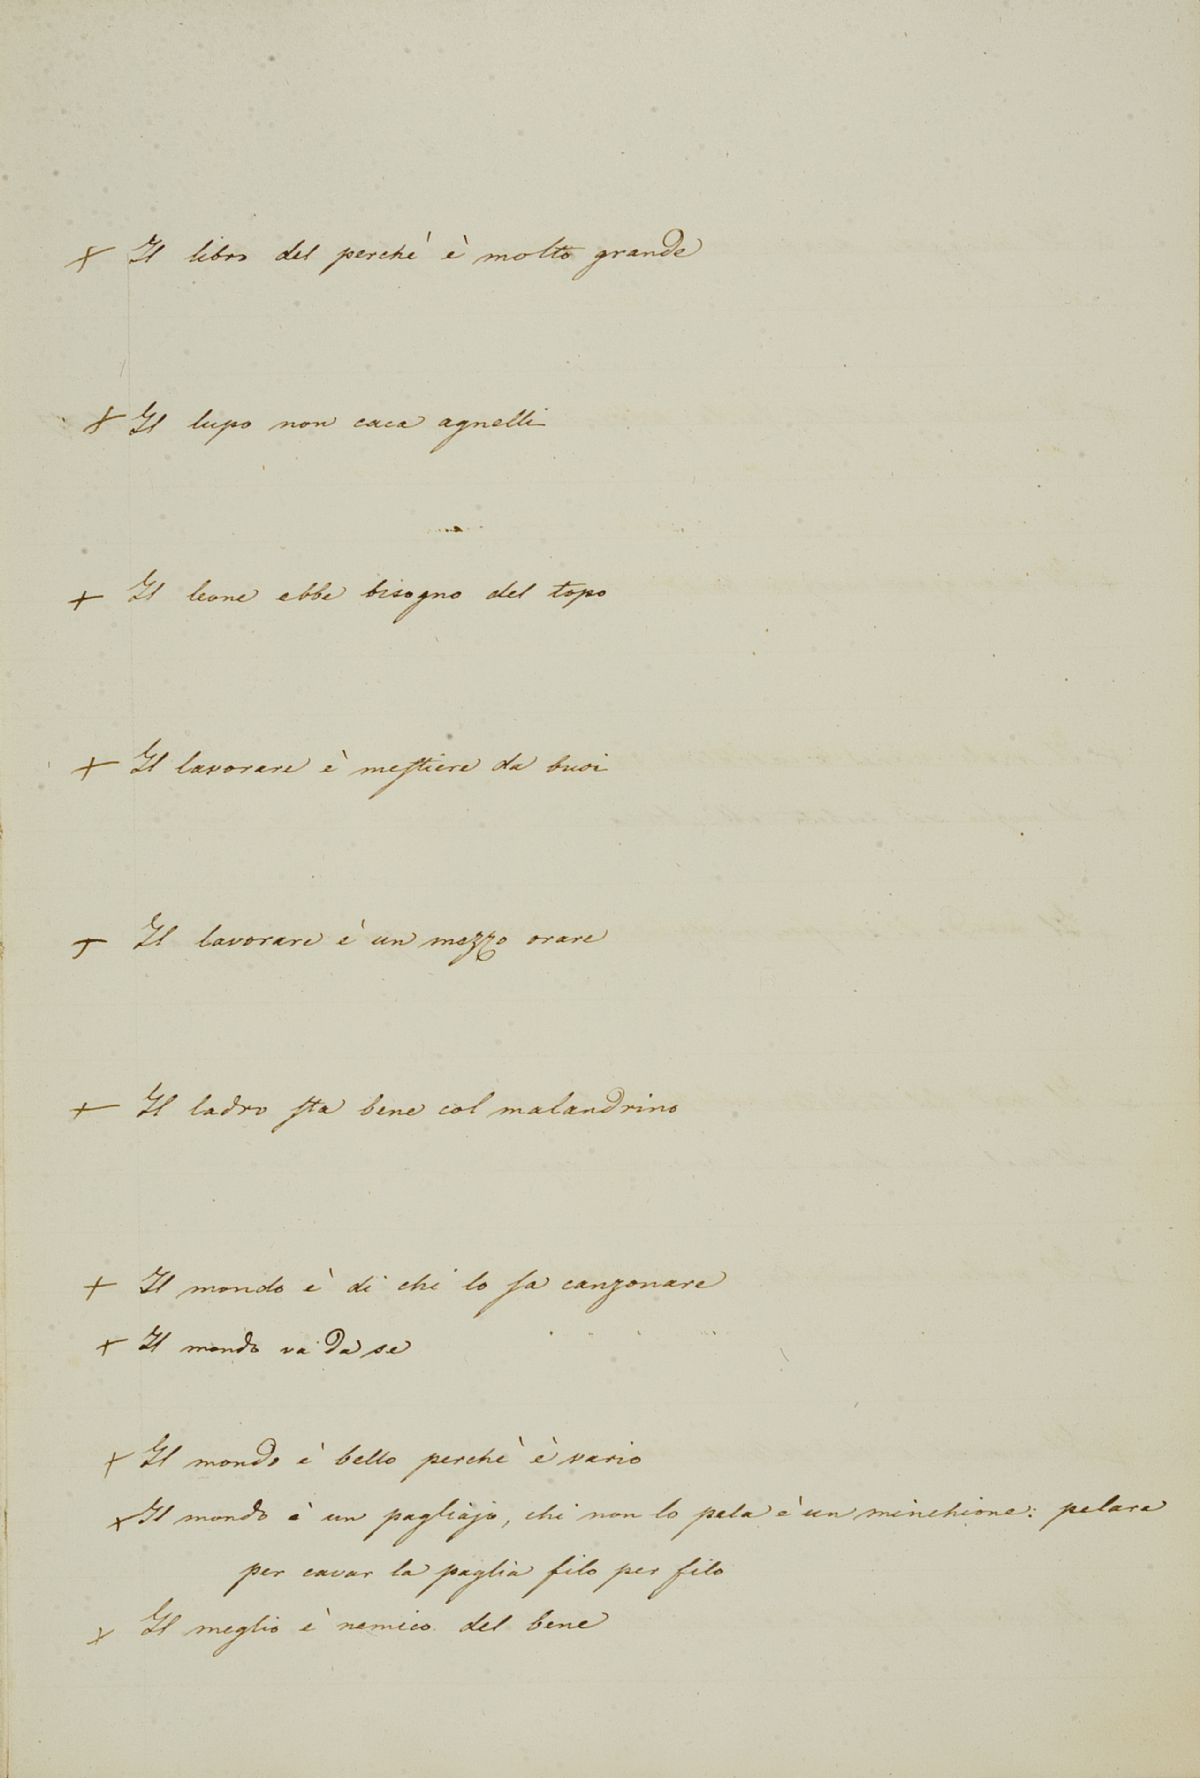 + Il libro del perchè è molto grande
+ Il lupo non caca agnelli
+ Il leone ebbe bisogno del topo
+ Il lavorare è mestiere da buoi
+ Il lavorare è un mezzo orare
+ Il ladro sta bene col malandrino
+ Il mondo è di chi lo sa canzonare
+ Il mondo va da se
+ Il mondo è bello perchè è vario
+ Il mondo è un pagliajo, chi non lo pela è un minchione: pelara
per cavar la paglia filo per filo
+ Il meglio è nemico del bene